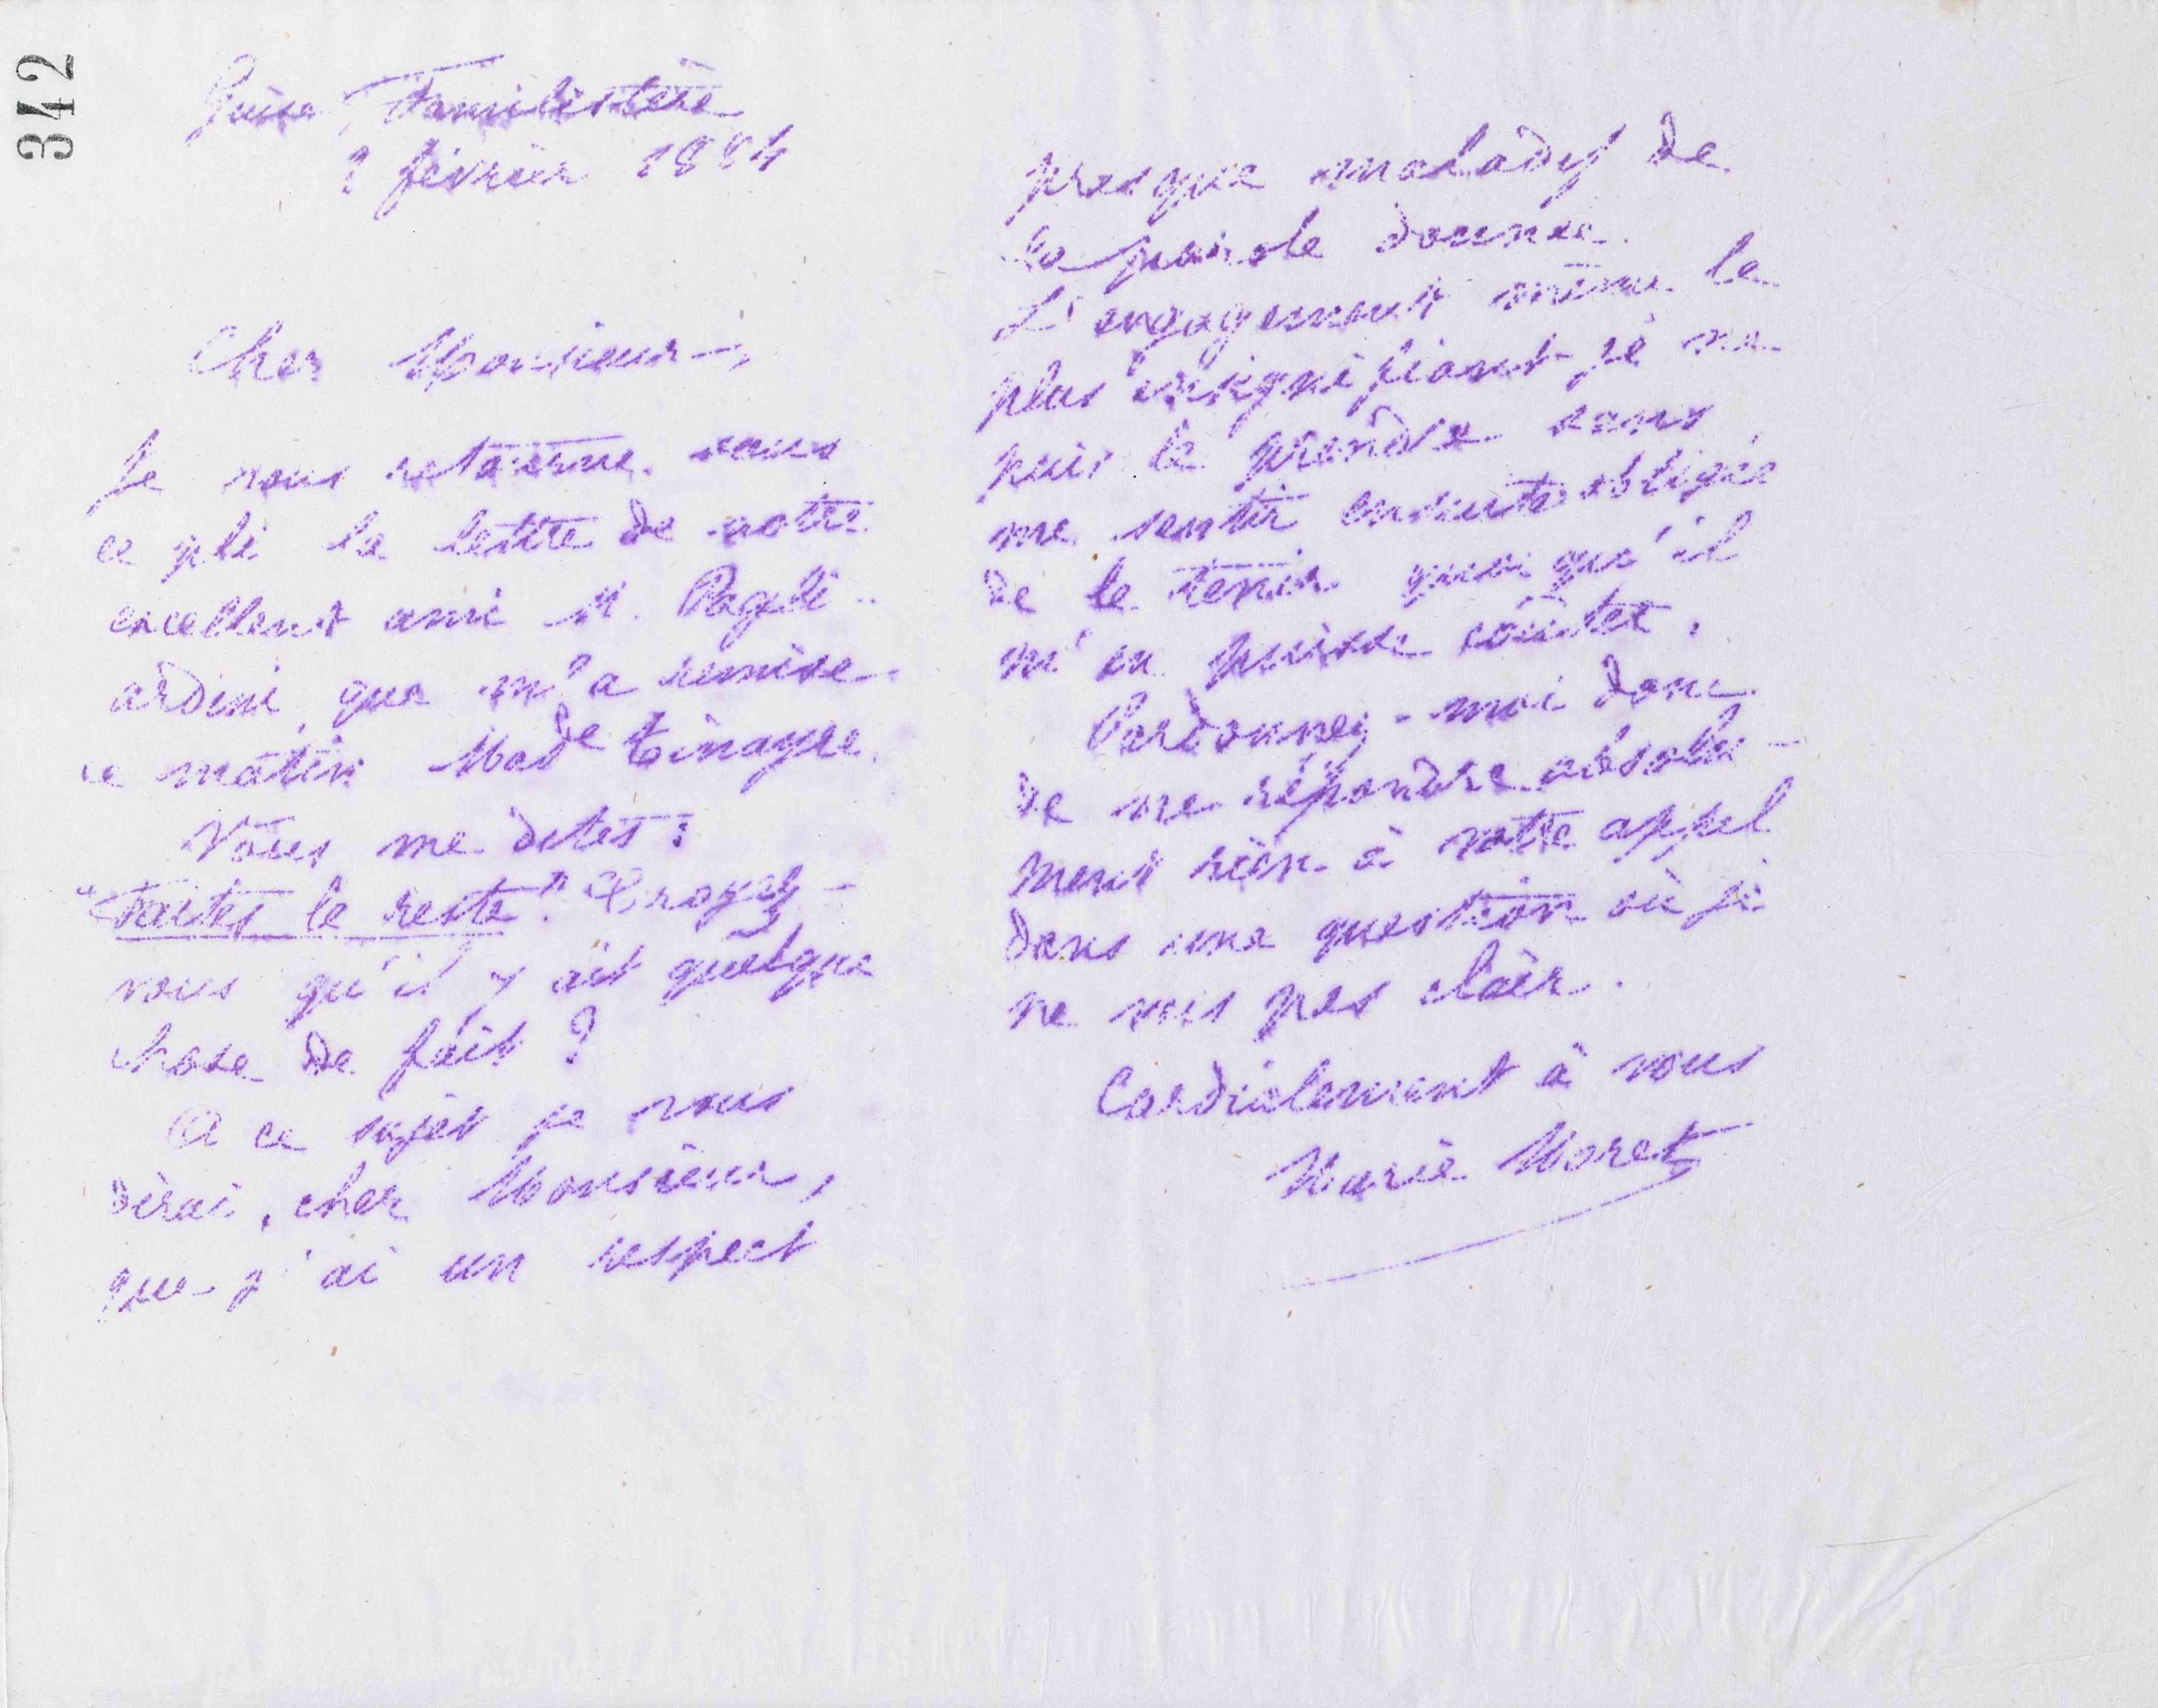 342
Guise Familistère
2 février 1884
Cher Monsieur,
Je vous retourne sous
ce pli la lettre de notre
excellent ami M. Pagli-
ardini, que m'a remise
ce matin Mad^e Tinayre.
Vous me dites :
"Faites le reste". Croyez-
vous qu'il y ait quelque
chose de fait ?
A ce sujet je vous
dirai, cher Monsieur,
que j'ai un respect
presque maladif de
la parole donnée.
L'engagement même le
plus insignifiant je ne
puis le prendre sans
me sentir ensuite obligée
de le tenir quoi qu'il
m'en puisse coûter.
Pardonnez-moi donc
de ne répondre absolu-
ment rien à votre appel
dans une question où je
ne vois pas clair.
Cordialement à vous
Marie Moret